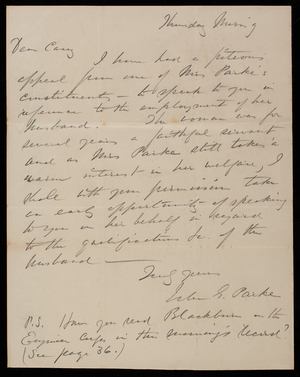 Thursday Morning
Dear Casey
I have had a piteous
appeal from one of Mrs Parke's
constituents – to speak to you in
reference to the employment of her
husband. The woman was for
several years a faithful servant
and as Mrs Parke still takes a
warm interest in her welfare, I
shall with your permission take
an early opportunity of speaking
to you on her behalf in regard
to the qualifications &c of the
husband —
Truly yours
John G. Parke
P.S. Have you read Blackburn on the
Engineer Corps in this morning's Record?
(See page 36.)